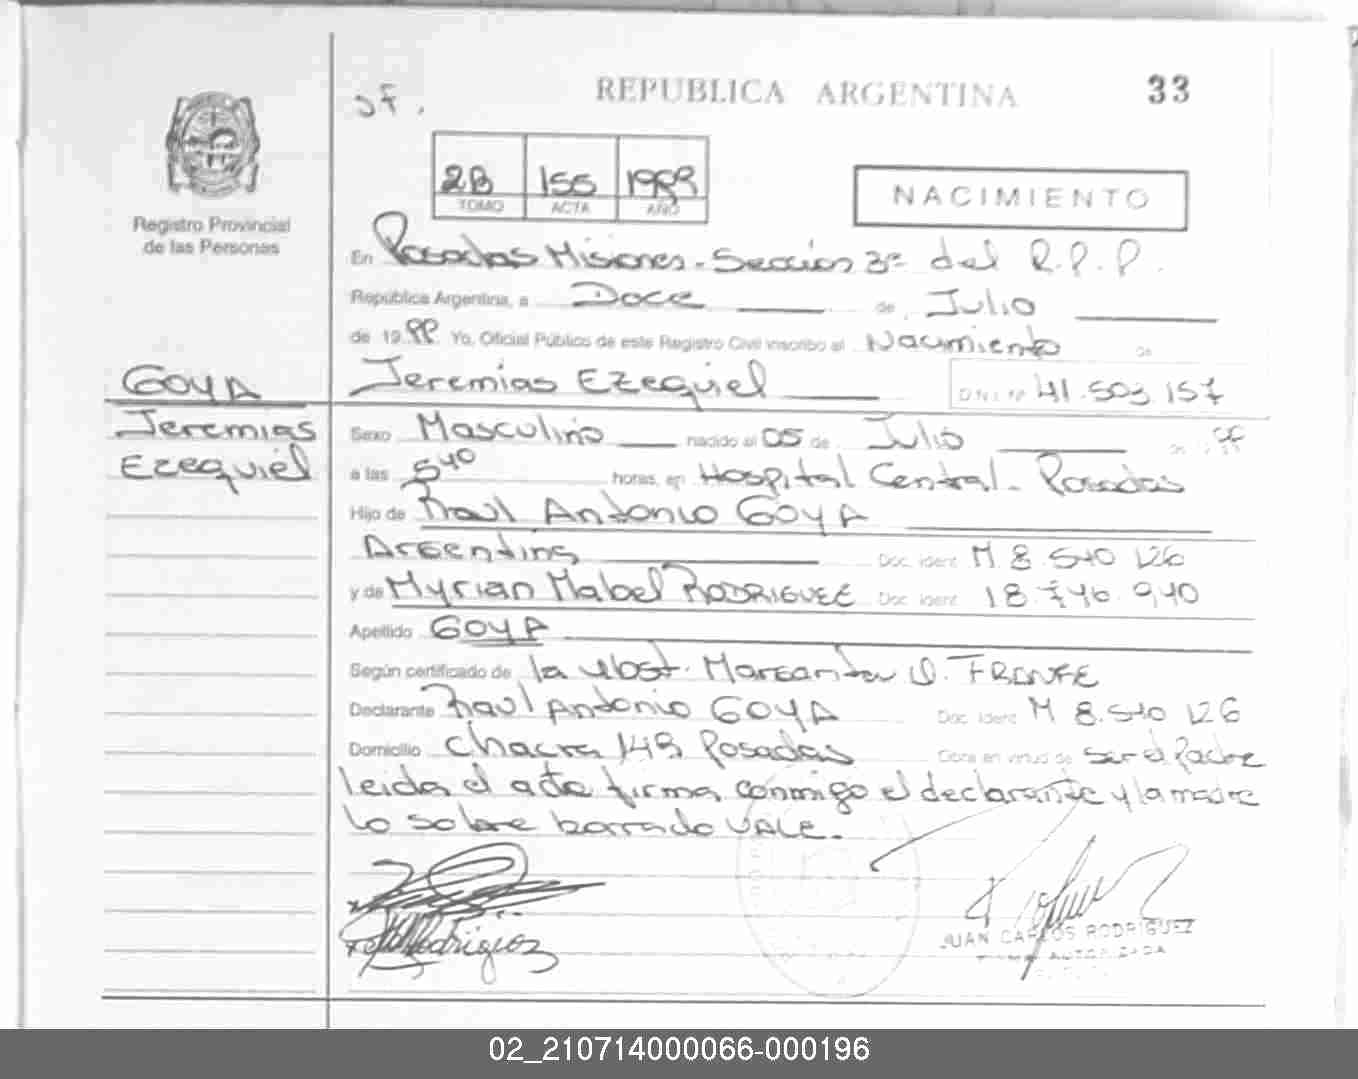 REPUBLICA ARGENTINA
33
2B 155
TOMO ACTA AÑO
NACIMIENTO
Registro Provincial
de las Personas
En Posadas Misiones - Seccion 3ª del R.P.P.
República Argentina, a Doce de Julio
de 1999 Yo, Oficial Público de este Registro Civil inscribo el Nacimiento de
Jeremias Ezequiel D.N.I. Nº 41.503.157
GOYA
Jeremias
Ezequiel
Sexo Masculino nacido el 05 de Julio
a las 5 40 horas, en Hospital Central - Posadas
Hijo de Raul Antonio GOYA
Argentina Doc. Ident. M 8.540 126
y de Myrian Mabel RODRIGUEZ Doc. Ident. 18.746.940
Apellido GOYA
Según certificado de la Obst. Margarita
Declarante Raul Antonio GOYA Doc. Ident. M 8.540 126
Domicilio Chacra 149 Posadas Obra en virtud de Ser el Padre
leida el acta firma conmigo el declarante y la madre
lo sobre borrado VALE.
Rodriguez
JUAN CARLOS RODRIGUEZ
AUTORIZADA
02_210714000066-000196